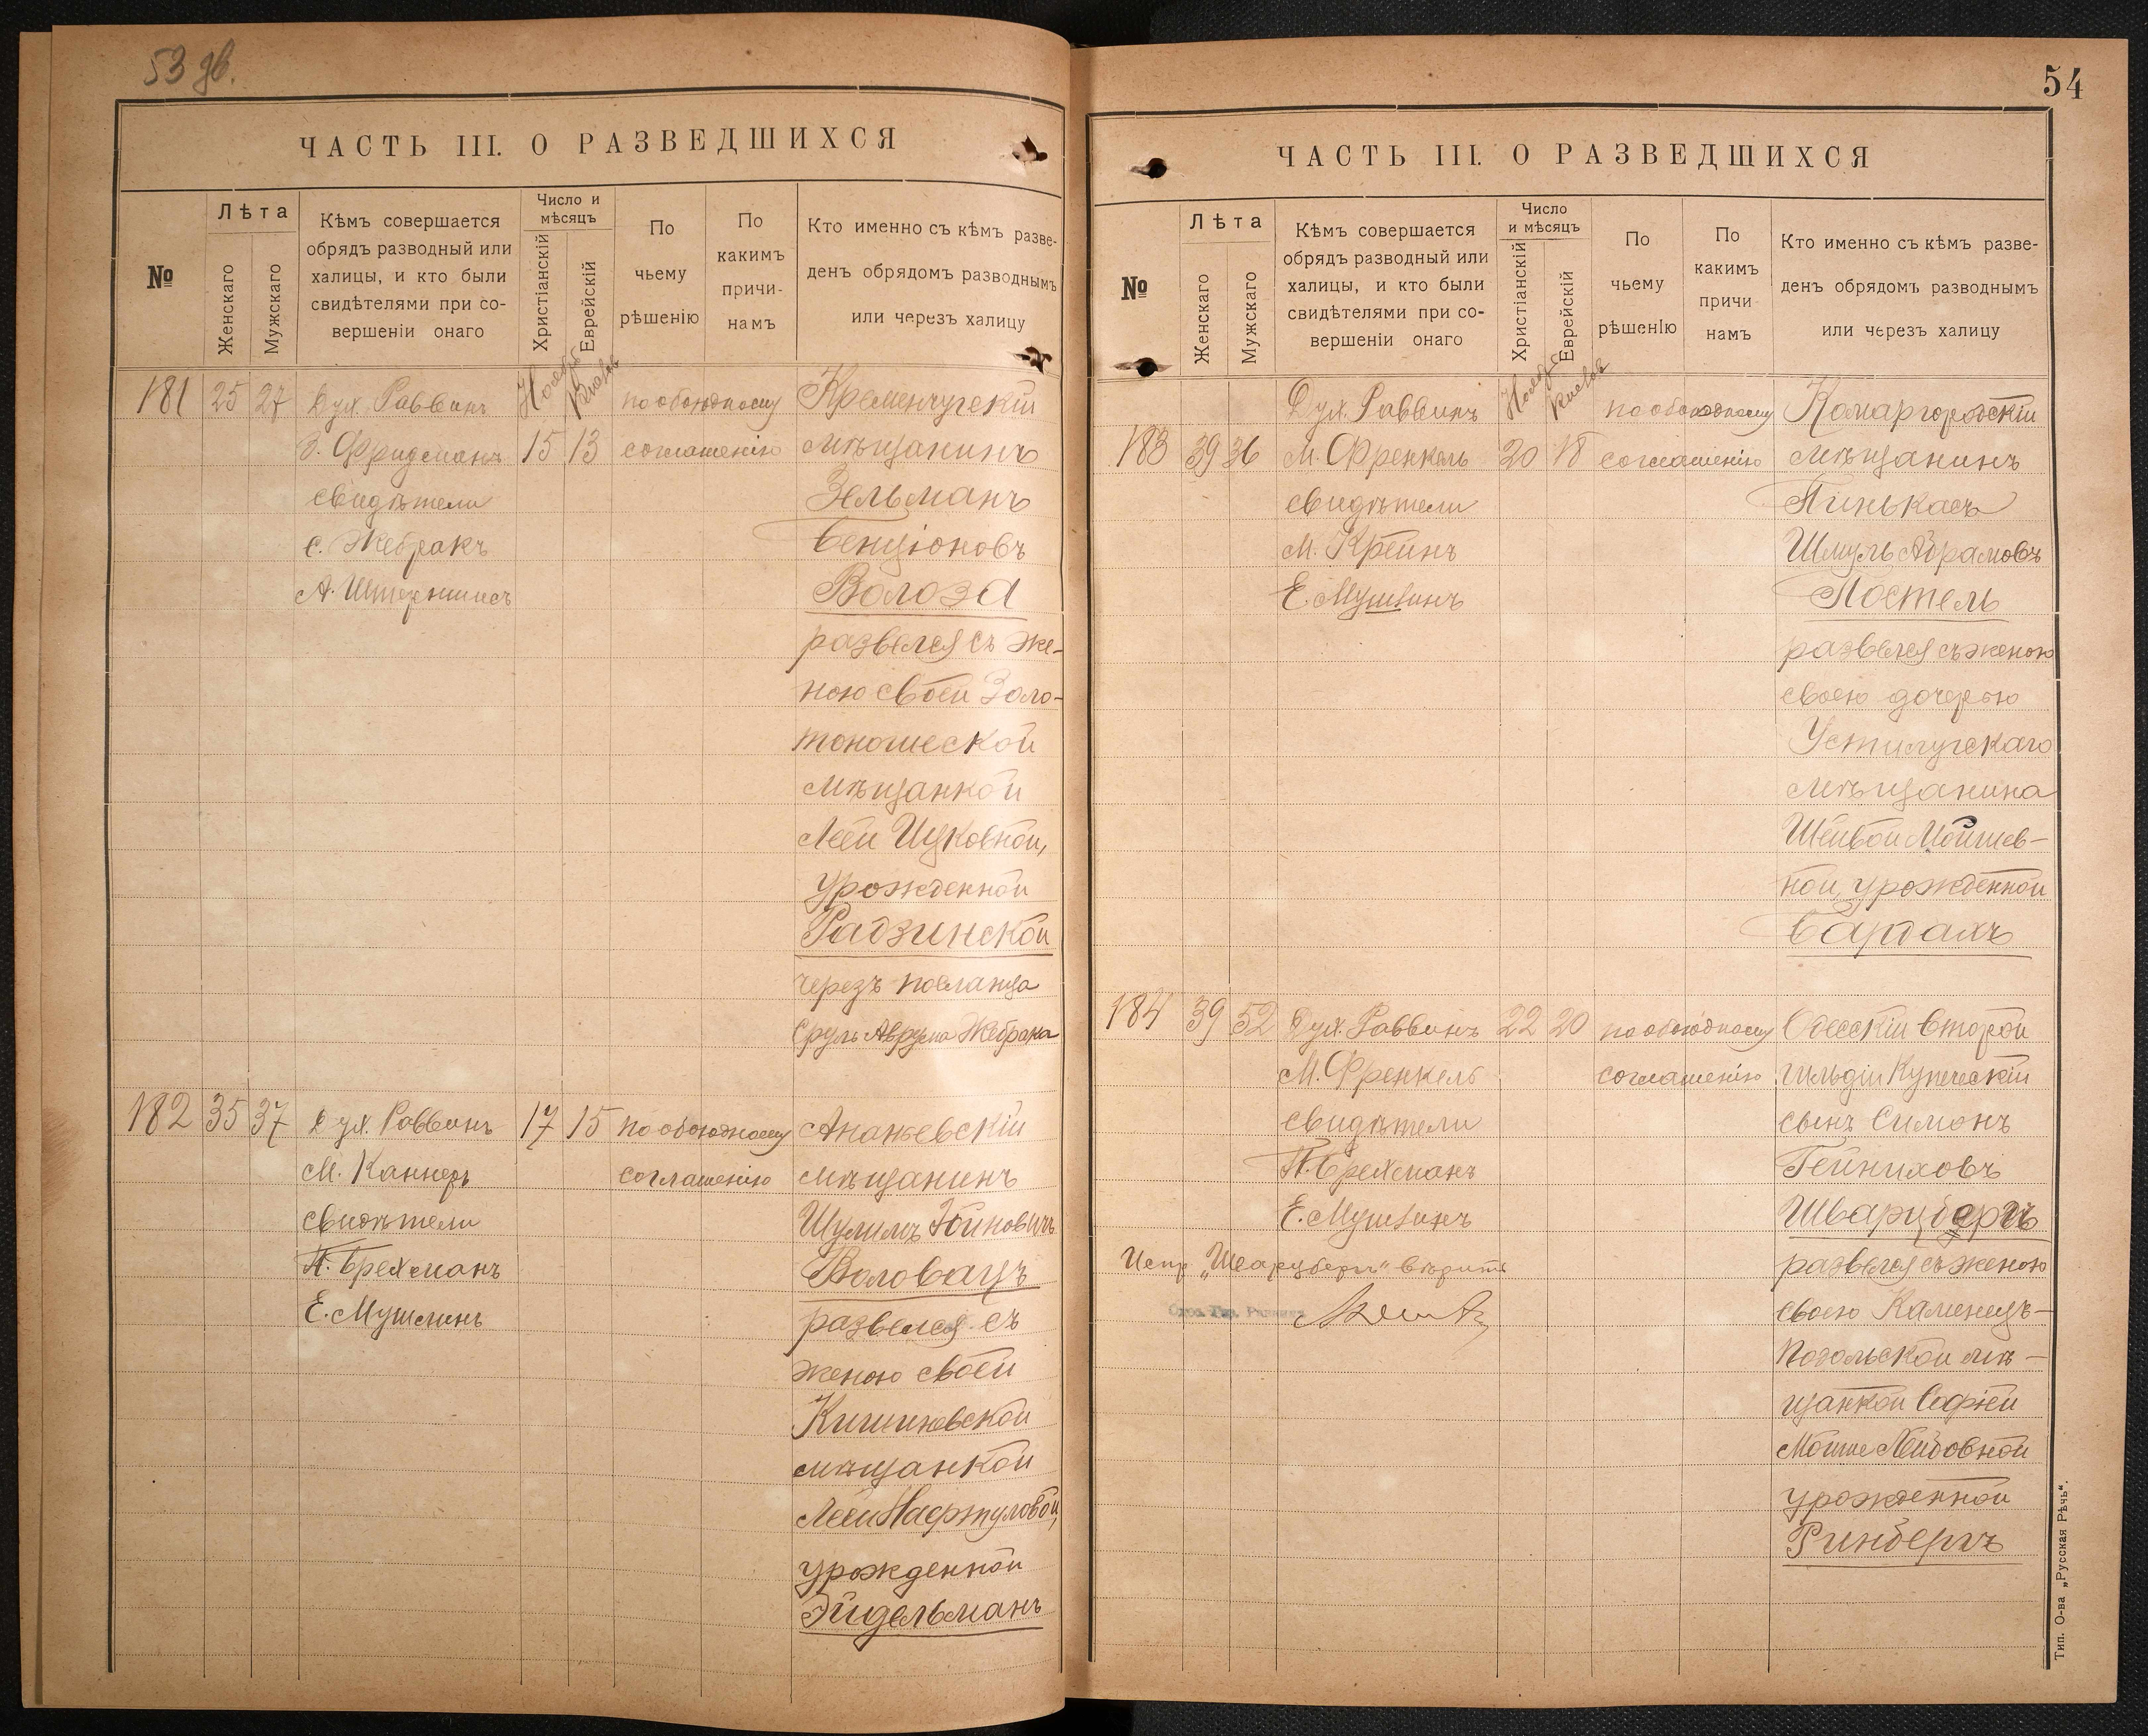 53 зв.
ЧАСТЬ III. О РАЗВЕДШИХСЯ
№
Лѣта
Женскаго
Мужскаго
Кѣмъ совершается
обрядъ разводный или
халицы, и кто были
свидѣтелями при со-
вершеніи онаго
Число и
мѣсяцъ
Христіанскій
Еврейскій
По
чьему
рѣшенію
По
какимъ
причи-
намъ
Кто именно съ кѣмъ разве-
денъ обрядомъ разводнымъ
или черезъ халицу
Ноября Кислев
181 25 27 Дух. Раввинъ по обоюдному Кременчугскій
З. Фридманъ 15 13 соглашенію мѣщанинъ
свидѣтели Зельманъ
С. Жебракъ Бенціоновъ
А. Штерншисъ Волоза
развелся съ же-
ною своей Золо-
тоношской
мѣщанкой
Леей Ицковной,
урожденной
Радзинской
черезъ посланца
Сруль Аврума Жебрака
182 35 37 Дух. Раввинъ 17 15 по обоюдному Ананьевскій
М. Каннеръ соглашенію мѣщанинъ
свидѣтели Шулимъ Іойновичъ
П. Брехманъ Воловацъ
Е. Мушлинъ развелся съ
женою своей
Кишиневской
мѣщанкой
Леей Нафтуловой,
урожденной
Эйдельманъ
54
ЧАСТЬ III. О РАЗВЕДШИХСЯ
№
Лѣта
Женскаго
Мужскаго
Кѣмъ совершается
обрядъ разводный или
халицы, и кто были
свидѣтелями при со-
вершеніи онаго
Число
и мѣсяцъ
Христіанскій
Еврейскій
По
чьему
рѣшенію
По
какимъ
причи
намъ
Кто именно съ кѣмъ разве-
денъ обрядомъ разводнымъ
или черезъ халицу
Ноября Кислев
Дух. Раввинъ по обоюдному Комаргородскій
183 39 36 М. Френкель 20 18 соглашенію мѣщанинъ
свидѣтели Пинькасъ
М. Крейнъ Шмуль Абрамовъ
Е. Мушлинъ Постель
развелся съ женою
своею дочерью
Устилугскаго
мѣщанина
Шейвой Мойшев-
ной, урожденной
Бардахъ
184 39 52 Дух. Раввинъ 22 20 по обоюдному Одесскій второй
М. Френкель соглашенію гильдіи Купеческій
свидѣтели сынъ Симонъ
П. Брехманъ Гейниховъ
Е. Мушлинъ Шварцбергъ
Испр. „Шварцбергъ“ вѣрить развелся съ женою
своею Каменецъ-
Подольской мѣ-
щанкой Софіей
Мойше Лейбовной
урожденной
Ринбергъ
Тип. О-ва „Русская Рѣчь“.